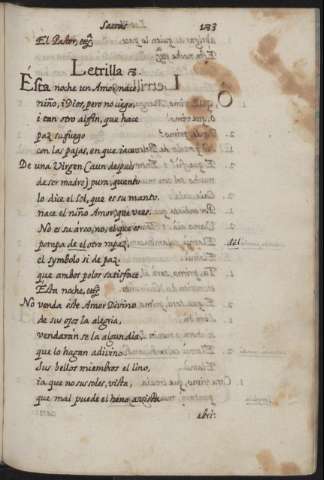 Sacras 133
El Pastor, etcª
Letrilla 3.
Ésta noche un Amor nace,
niño, i Dios, pero no ciego,
i tan otro alfin, que hace
paz su fuego
con las pajas, en que iace.
De una Virgen (aun despues
de ser madre) pura, quanto
lo dice el Sol, que es su manto,
nace el niño Amor, que vees.
No es su arco, no, el que es
pompa de el otro rapaz,
el symbolo si de paz
que ambos polos satisface.
Esta noche, etcª
No venda este Amor Divino
de sus ojos la alegria,
vendaránselos algun dia,
que lo hagan adivino.
Sus bellos miembros el lino,
ia que no sus soles, vista,
que mal puede el heno
abri-